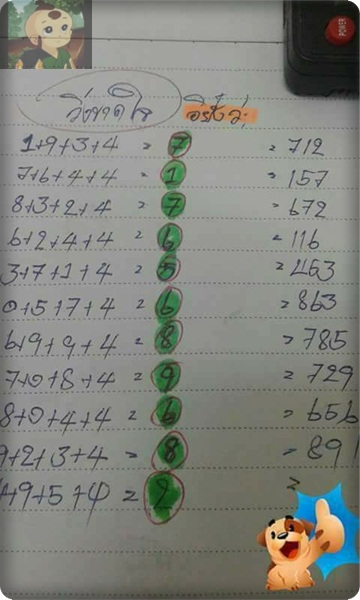 วิ่งขาดใจ
1+9+3+4 = 7 = 712
7+6+4+4 = 1 = 157
8+3+2+4 = 7 = 672
6+2+4+4 = 6 = 116
3+7+1+4 = 5 = 463
0+5+7+4 = 6 = 863
6+9+9+4 = 8 = 785
7+0+8+4 = 9 = 729
8+0+4+4 = 6 = 656
9+2+3+4 = 8 = 891
+9+5+4 = 2 =
POWER